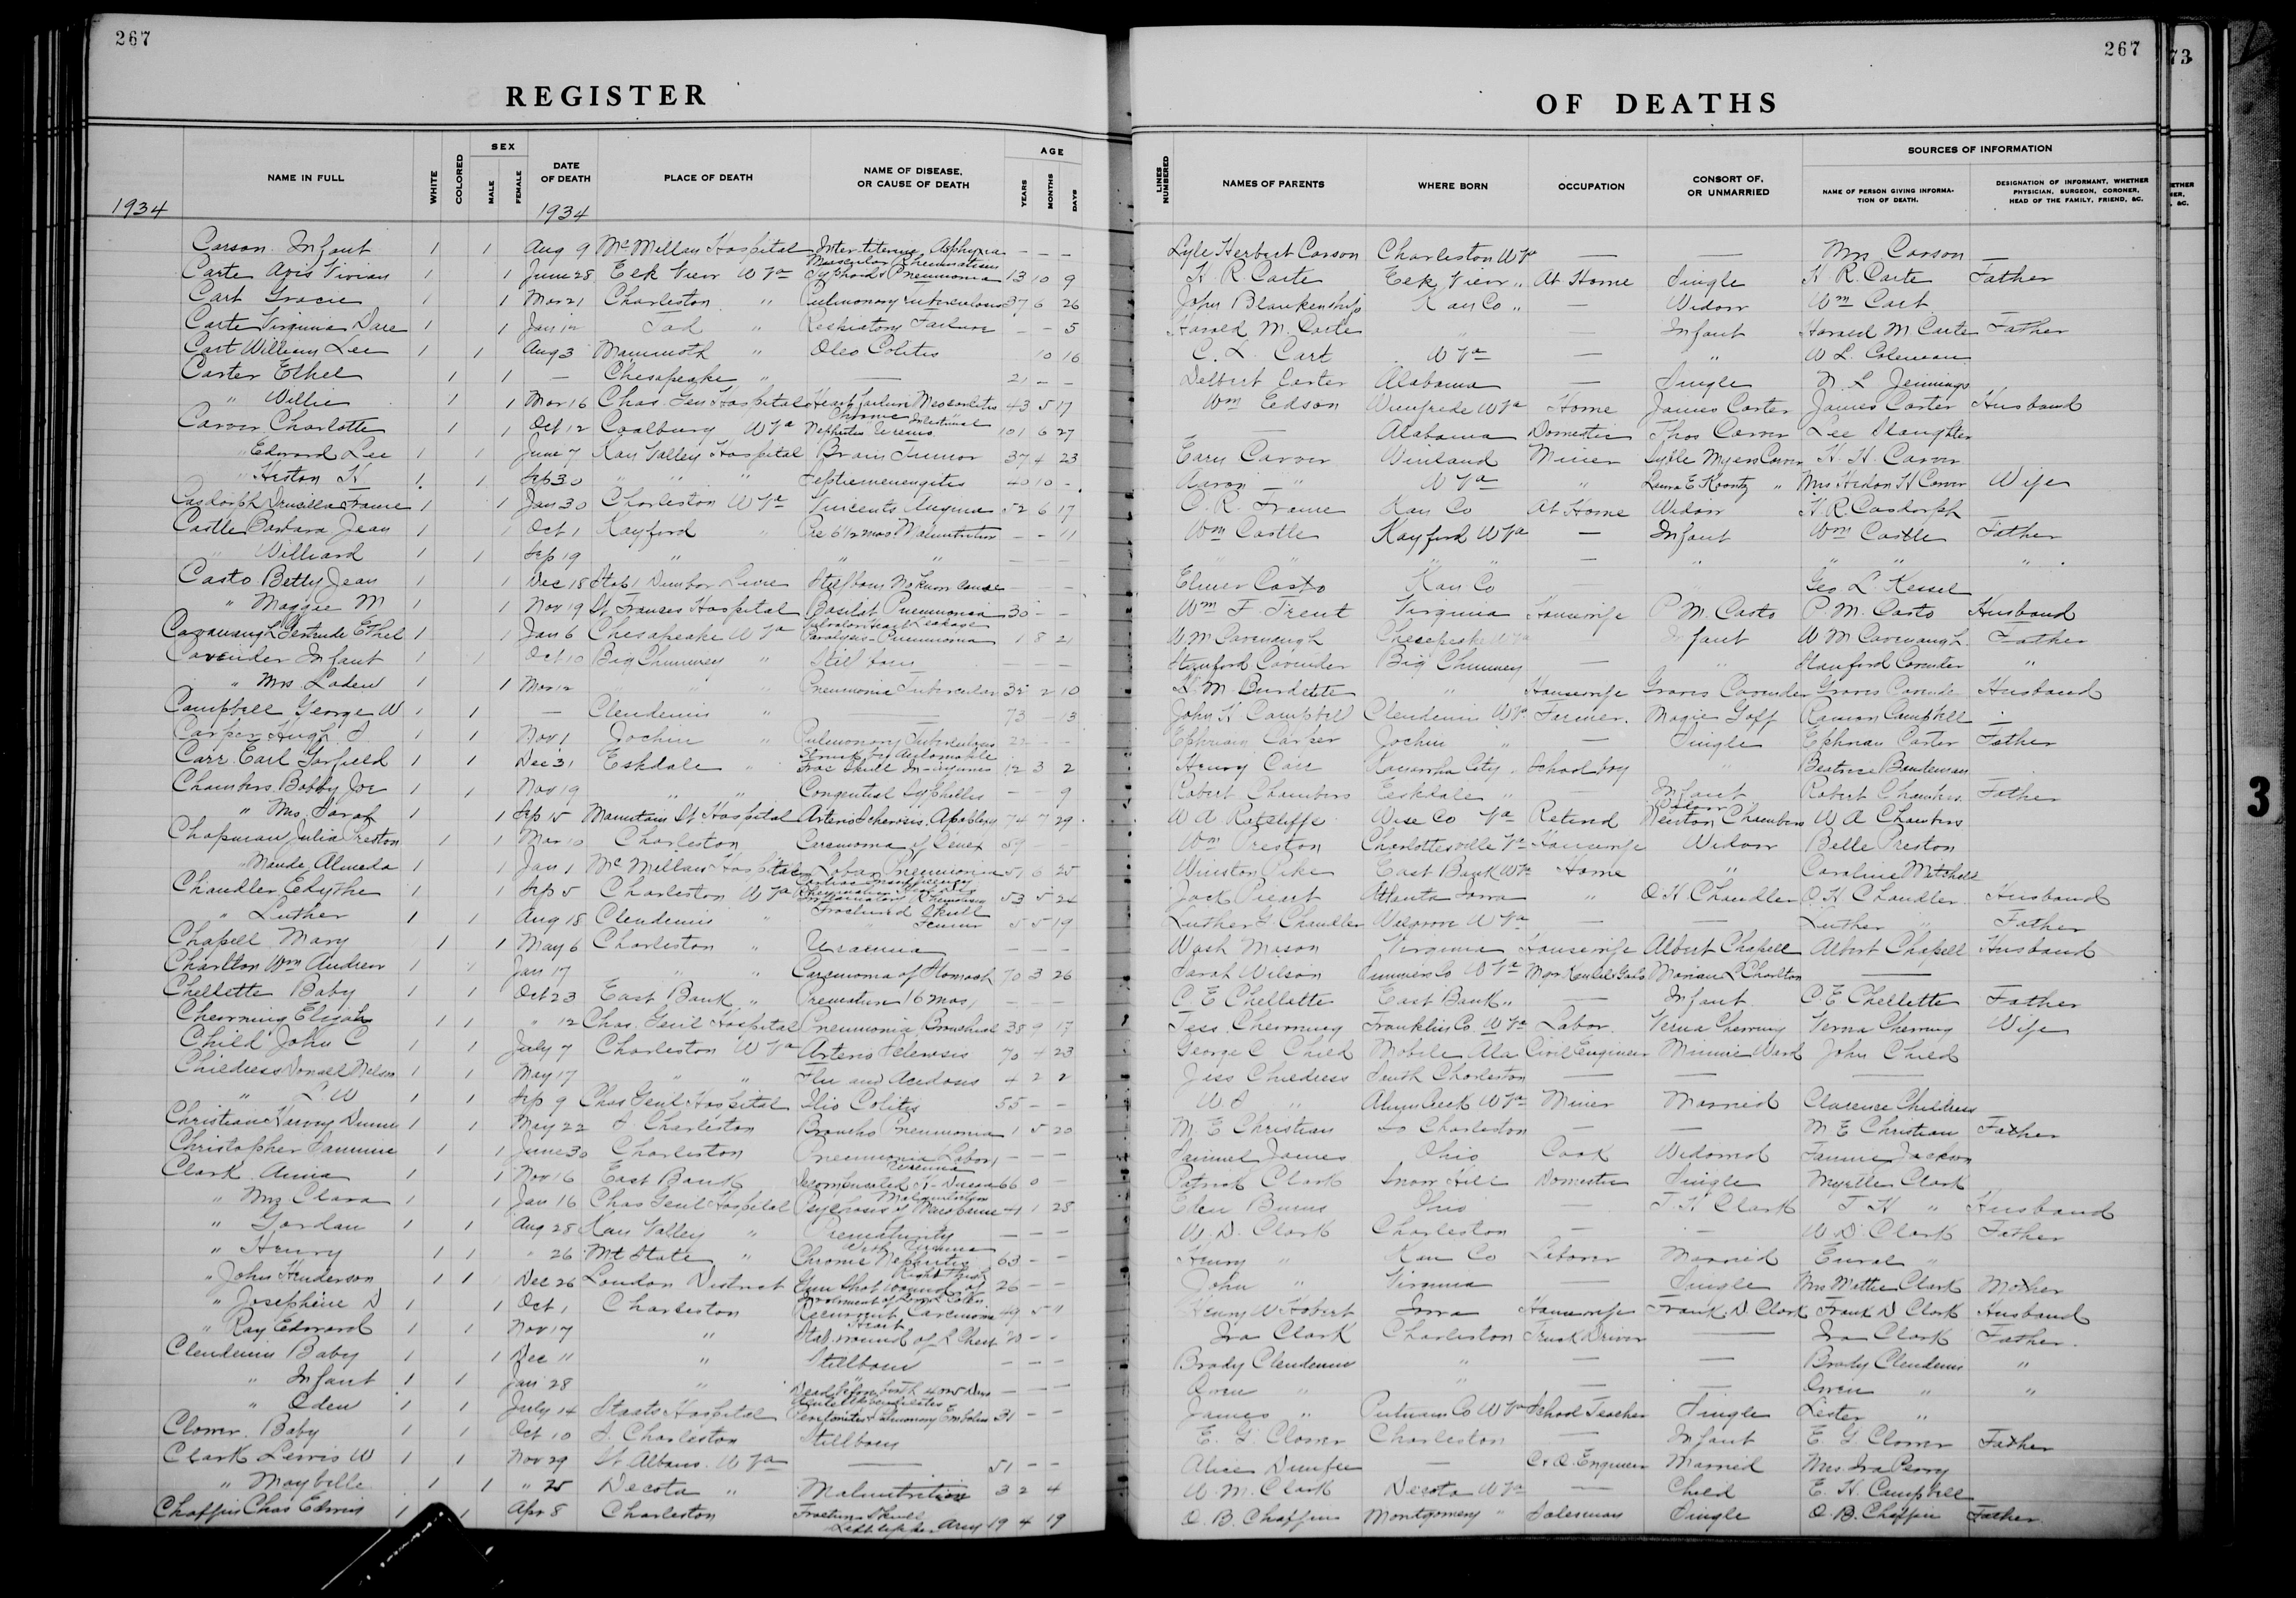 267
REGISTER
NAME IN FULL WHITE COLORED SEX MALE FEMALE DATE OF DEATH PLACE OF DEATH NAME OF DISEASE, OR CAUSE OF DEATH AGE YEARS MONTHS DAYS
1934 1934
Carson Infant 1 1 Aug 9 McMillan Hospital Asphyxia — — —
Muscular Rheumatism
Carte Avis Vivian 1 1 June 28 Elk View W Va Typhoid Pneumonia 13 10 9
Cart Gracie 1 1 Mar 21 Charleston " Pulmonary Tuberculosis 37 6 26
Carte Virginia Dare 1 1 Jan 12 Tad " Respiratory Failure — — 5
Cart William Lee 1 1 Aug 3 Mammoth " Oleo Colitis 10 16
Carter Ethel 1 1 — Chesapeake " — 21 — —
" Willie 1 1 Mar 16 Chas. Gen Hospital Heart Failure 43 5 17
Chronic Intestinal
Carver Charlotte 1 1 Oct 12 Coalburg W Va Nephritis Uremia 101 6 27
" Edward Lee 1 1 June 7 Kan Valley Hospital Brain Tumor 37 4 23
" Heston H 1 1 Sep 30 " " " Septicmenengites 40 10 -
Casdorph Druscilla Frame 1 1 Jan 30 Charleston W Va Vincents Angina 52 6 17
Castle Barbara Jean 1 1 Oct 1 Kayford " Pre 6 1/2 mos Malnutrition — — 11
" Williard 1 1 Sep 19 " " "
Casto Betty Jean 1 1 Dec 18 Stab 1 Dunbar Stillborn No Known Cause — — —
" Maggie M 1 1 Nov 19 St Frances Hospital Pneumonia 30 — —
Leakage
Cavanaugh Gertrude Ethel 1 1 Jan 6 Chesapeake W Va Paralysis - Pneumonia 1 8 21
Cavender Infant 1 1 Oct 10 Big Chimney " Still born — —
" Mrs Laden 1 1 Mar 12 " " " Pneumonia Tubercular 32 2 10
Campbell George W 1 1 — Clendenin " — 73 — 13
Carper Hugh 1 1 Nov 1 Jochin " Pulmonary Tuberculosis 22 — —
Struck by Automobile
Carr Earl Garfield 1 1 Dec 31 Eskdale " Frac Skull In-injuries 12 3 2
Chambers Bobby Joe 1 1 Nov 19 " " Congential Syphillis — — 9
" Mrs Sarah 1 1 Sep 15 Mountain St Hospital Arterio Sclerosis. Apoplexy 74 7 29
Chapman Julia Preston 1 1 Mar 10 Charleston Carcinoma of 59 — —
" Maude Almeda 1 1 Jan 1 McMillan Hospital Lobar Pneumonia 51 6 25
Chandler Edythe 1 1 Sep 5 Charleston W Va Inflamatory Rheumatism 53 5 24
Fractured Skull
" Luther 1 1 Aug 18 Clendenin " " Femur 5 5 19
Chapell Mary 1 1 May 6 Charleston " Uraemia — — —
Charlton Wm Andrew 1 1 Jan 17 " " Carcinoma of Stomach 70 3 26
Chellette Baby 1 1 Oct 23 East Bank " Premature 16 mos — — —
Cherning Elijah 1 1 " 12 Chas. Genl Hospital Pneumonia Bronchial 38 9 17
Child John C 1 1 July 7 Charleston W Va Arterio Sclerosis 70 4 23
Childress Donald Nelson 1 1 May 17 " " Flu and Acedosis 4 2 2
" L W 1 1 Sep 9 Chas Genl Hospital Ilio Colitis 55 — —
Christian Harvey 1 1 May 22 S. Charleston Broncho Pneumonia 1 5 20
Christopher Fannie 1 1 June 30 Charleston Pneumonia Lobar — — —
Uremia
Clark Anna 1 1 Nov 16 East Bank 66 0 —
Malnutrition
" Mrs Clara 1 1 Jan 16 Chas Genl Hospital 41 1 28
" Gordan 1 1 Aug 28 Kan Valley " Prematurity — — —
With Uremia
" Henry 1 1 " 26 Mt State " Chronic Nephritis 63 — —
Right
" John Henderson 1 1 Dec 26 London District Gun shot wound of 26 — —
" Josephine D 1 1 Oct 1 Charleston Recurrent Carcinoma 49 5 11
Heart
" Ray Edward 1 1 Nov 17 " Stab wound of L Chest — —
Clendenin Baby 1 1 Dec 11 " Stillborn — — —
" Infant 1 1 Jan 28 " Dead before birth — — —
" Oden 1 1 July 14 Staats Hospital Peritonitis Pulmonary Embolism 31 — —
Clower Baby 1 1 Oct 10 S. Charleston Stillborn
Clark Lewis W 1 1 Nov 29 St Albans W Va — 51 — —
" Maybelle 1 1 " 25 Decota " Malnutrition 3 2 4
Fracture Skull
Chaffin Chas Edwin 1 1 Apr 8 Charleston Left Arm 19 4 19
267
OF DEATHS
LINES NUMBERED NAMES OF PARENTS WHERE BORN OCCUPATION CONSORT OF, OR UNMARRIED SOURCES OF INFORMATION
NAME OF PERSON GIVING INFORMATION OF DEATH. DESIGNATION OF INFORMANT, WHETHER PHYSICIAN, SURGEON, CORONER, HEAD OF THE FAMILY, FRIEND, &C.
Lyle Herbert Carson Charleston W Va — — Mrs Carson —
H R Carte Elk View " At Home Single H R. Carte Father
John Blankenship Kan Co " — Widow Wm Cart
Harold M. Carte " — Infant Harold M Carte Father
C. L. Cart W Va — " W L. Coleman
Delbert Carter Alabama — Single N. L Jennings
Wm Edson Winifrede W Va Home James Carter James Carter Husband
— Alabama Domestic Thos Carver Lee Slaughter
Eary Carver Winland Miner Lyble Myers Carver H. H. Carver
Aaron " W Va " Laura E Koontz " Mrs Heston H Carver Wife
C. R. Frame Kan Co At Home Widow H. R. Casdorph
Wm Castle Kayford W Va — Infant Wm Castle Father
" " " " — " " " "
Elmer Casto Kan Co " Geo L Kessel
Wm F Trent Virginia Housewife P M. Casto P. M. Casto Husband
W M Cavanaugh Chesepeake W Va Infant W M Cavenaugh Father
Stanford Cavender Big Chimney — " Stanford Cavender "
L. M. Burdette " Housewife Graves Cavender Graves Cavende Husband
John H Campbell Clendenin W Va Farmer. Magie Goff Ramon Campbell —
Ephriam Carper Jochin " — Single Ephriam Carter Father
Henry Carr Kanawha City " School boy " Beatrice Bandeman
Robert Chambers Eskdale " — Infant Robert Chambers Father
Widow
W W Ratcliffe Wise Co Va Retired Newton Chambers W A Chambers
Wm Preston Charlottesville Va Housewife Widow Belle Preston
Winston Pike East Bank W Va Home " Caroline Mitchell
Jack Atlanta Iowa " O H Chandler O. H. Chandler Husband
Luther G Chandler W Va — — Luther " Father
Wash Mason Virginia Housewife Albert Chapell Albert Chapell Husband
Sarah Wilson Summers Co W Va Marian L Charlton —
C. E Chellette East Bank " — Infant C. E Chellette Father
Jess Cherning Franklin Co. W Va Labor. Verna Cherning Verna Cherning Wife
George C Child Mobile Ala Civil Engineer Minnie Ward John Child
Jess Childress South Charleston — — —
W S " Alum Creek W Va Miner Married Clarence Childress
M E Christian So Charleston — — M. E Christian Father
Samuel James Ohio Cook Widowed Fannie Jackson
Patrick Clark Snow Hill Domestic Single Myrtle Clark
Eben Burns Ohio — T H Clark T H " Husband
W. D. Clark Charleston — — W. D. Clark Father
Henry " Kan Co Laborer Married Eural "
John " Virginia — Single Mrs Mattie Clark Mother
Henry W Hobert Iowa Housewife Frank D Clark Frank D Clark Husband
Ira Clark Charleston Truck Driver — Ira Clark Father.
Brady Clendenin " — — Brady Clendenin "
Owen " " — — Owen " "
James " Putnam Co W Va School Teacher Single Lester "
E. G. Clower Charleston — Infant E. G Clower Father
Alice — C & O. Engineer Married Mrs. Ira Perry
W. M. Clark Decota W Va — Child E. H. Campbell
O. B. Chaffin Montgomery " Salesman Single O. B. Chaffin Father
73
3